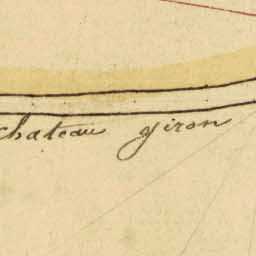 chateau giron